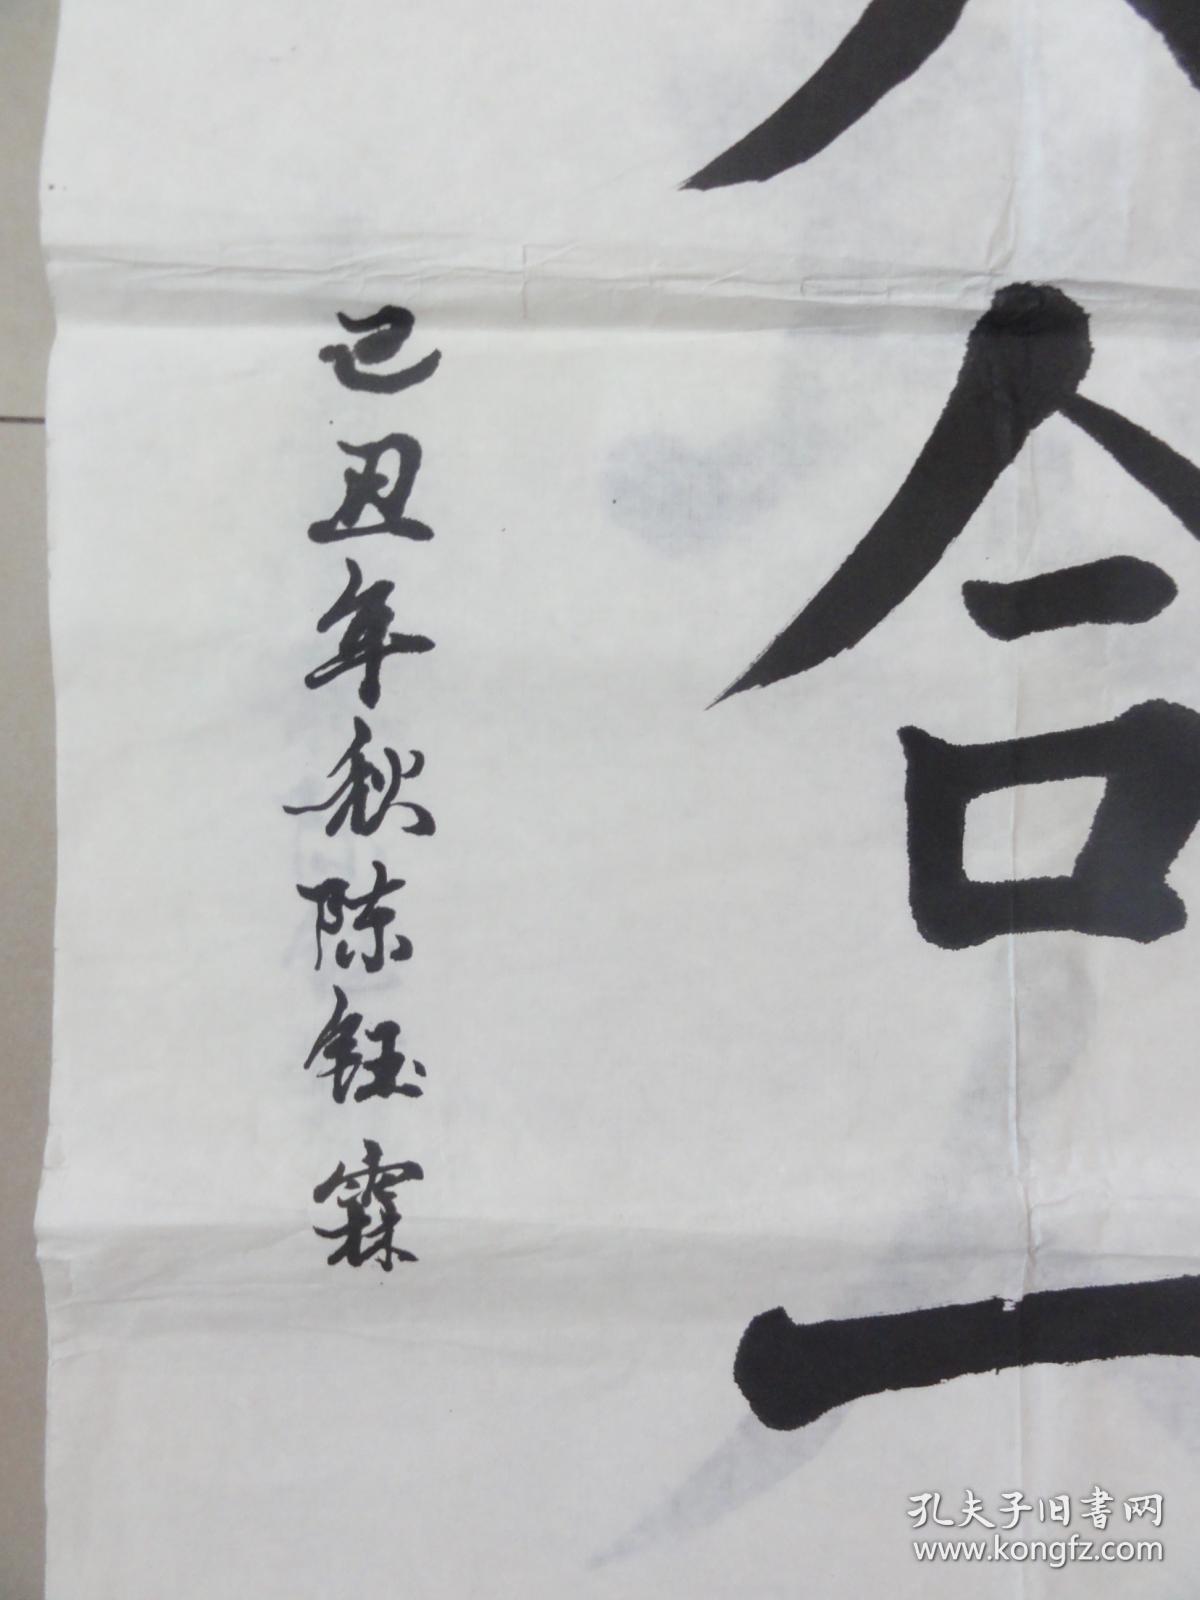 人合一
己丑年秋陈钰霖
孔夫子旧书网
www.kongfz.com